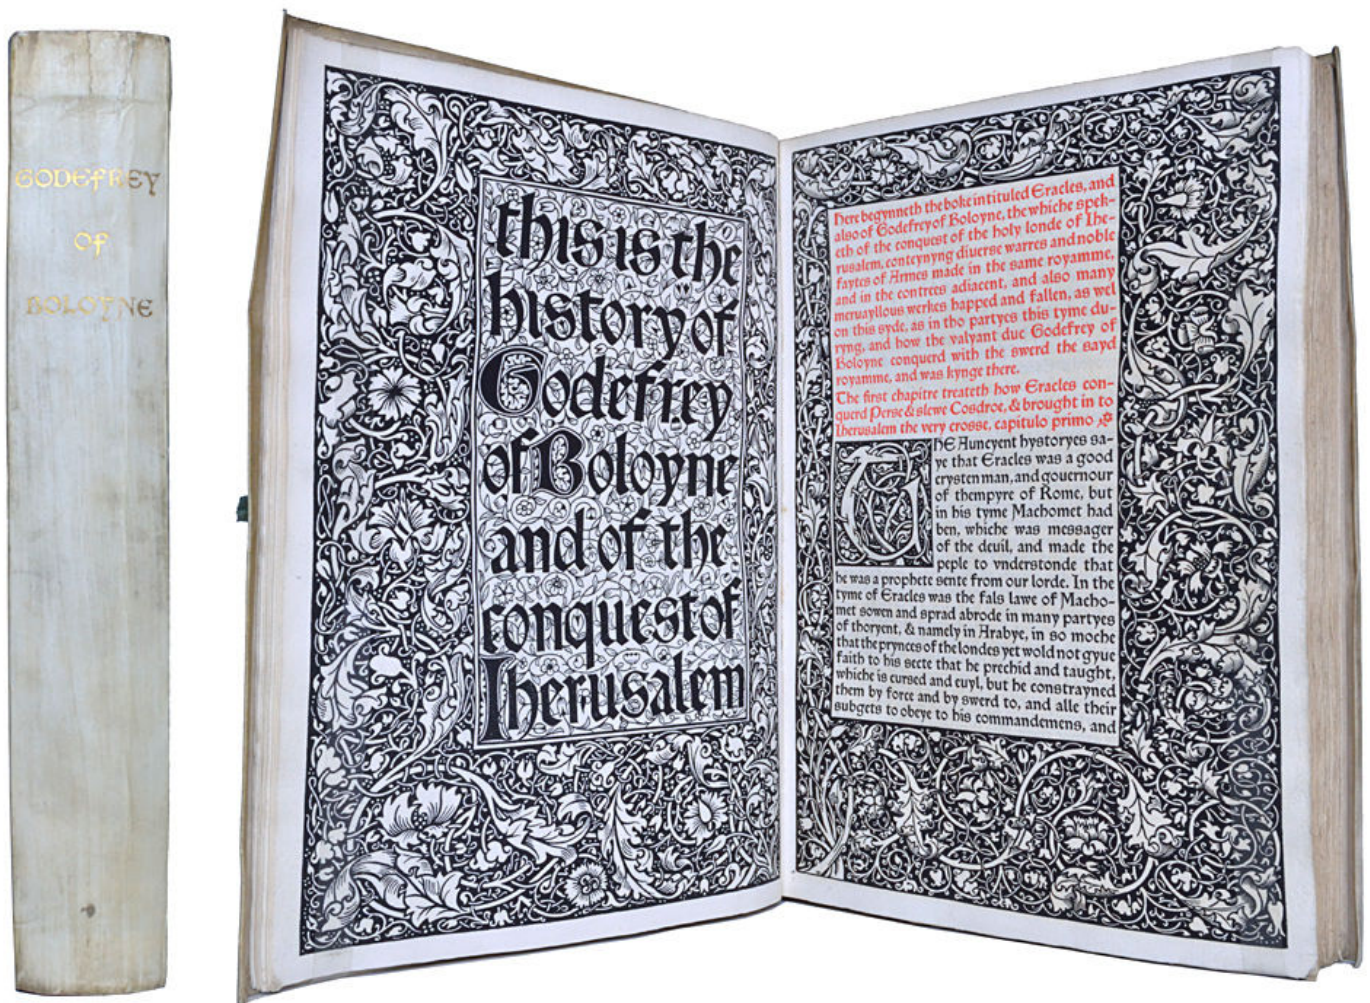 GODEFREY
OF
BOLOYNE
this is the
history of
Godefrey
of Boloyne
and of the
conquest of
Iherusalem
Here begynneth the boke intituled Eracles, and
also of Godefrey of Boloyne, the whiche spek-
eth of the conquest of the holy londe of Ihe-
rusalem, conteynyng diuerse warres and noble
faytes of Armes made in the same royamme,
and in the contrees adiacent, and also many
meruayllous werkes happed and fallen, as wel
on this syde, as in tho partyes this tyme du-
ryng, and how the valyant duc Godefrey of
Boloyne conquerd with the swerd the sayd
royamme, and was kynge there.
The first chapitre treateth how Eracles con-
querd Perse & slewe Cosdroe, & brought in to
Iherusalem the very crosse, capitulo primo
THE Auncyent hystoryes sa-
ye that Eracles was a good
crysten man, and gouernour
of thempyre of Rome, but
in his tyme Machomet had
ben, whiche was messager
of the deuil, and made the
peple to vnderstonde that
he was a prophete sente from our lorde. In the
tyme of Eracles was the fals lawe of Macho-
met sowen and sprad abrode in many partyes
of thoryent, & namely in Arabye, in so moche
that the prynces of the londes yet wold not gyue
faith to his secte that he prechid and taught,
whiche is cursed and euyl, but he constrayned
them by force and by swerd to, and alle their
subgets to obeye to his commandemens, and